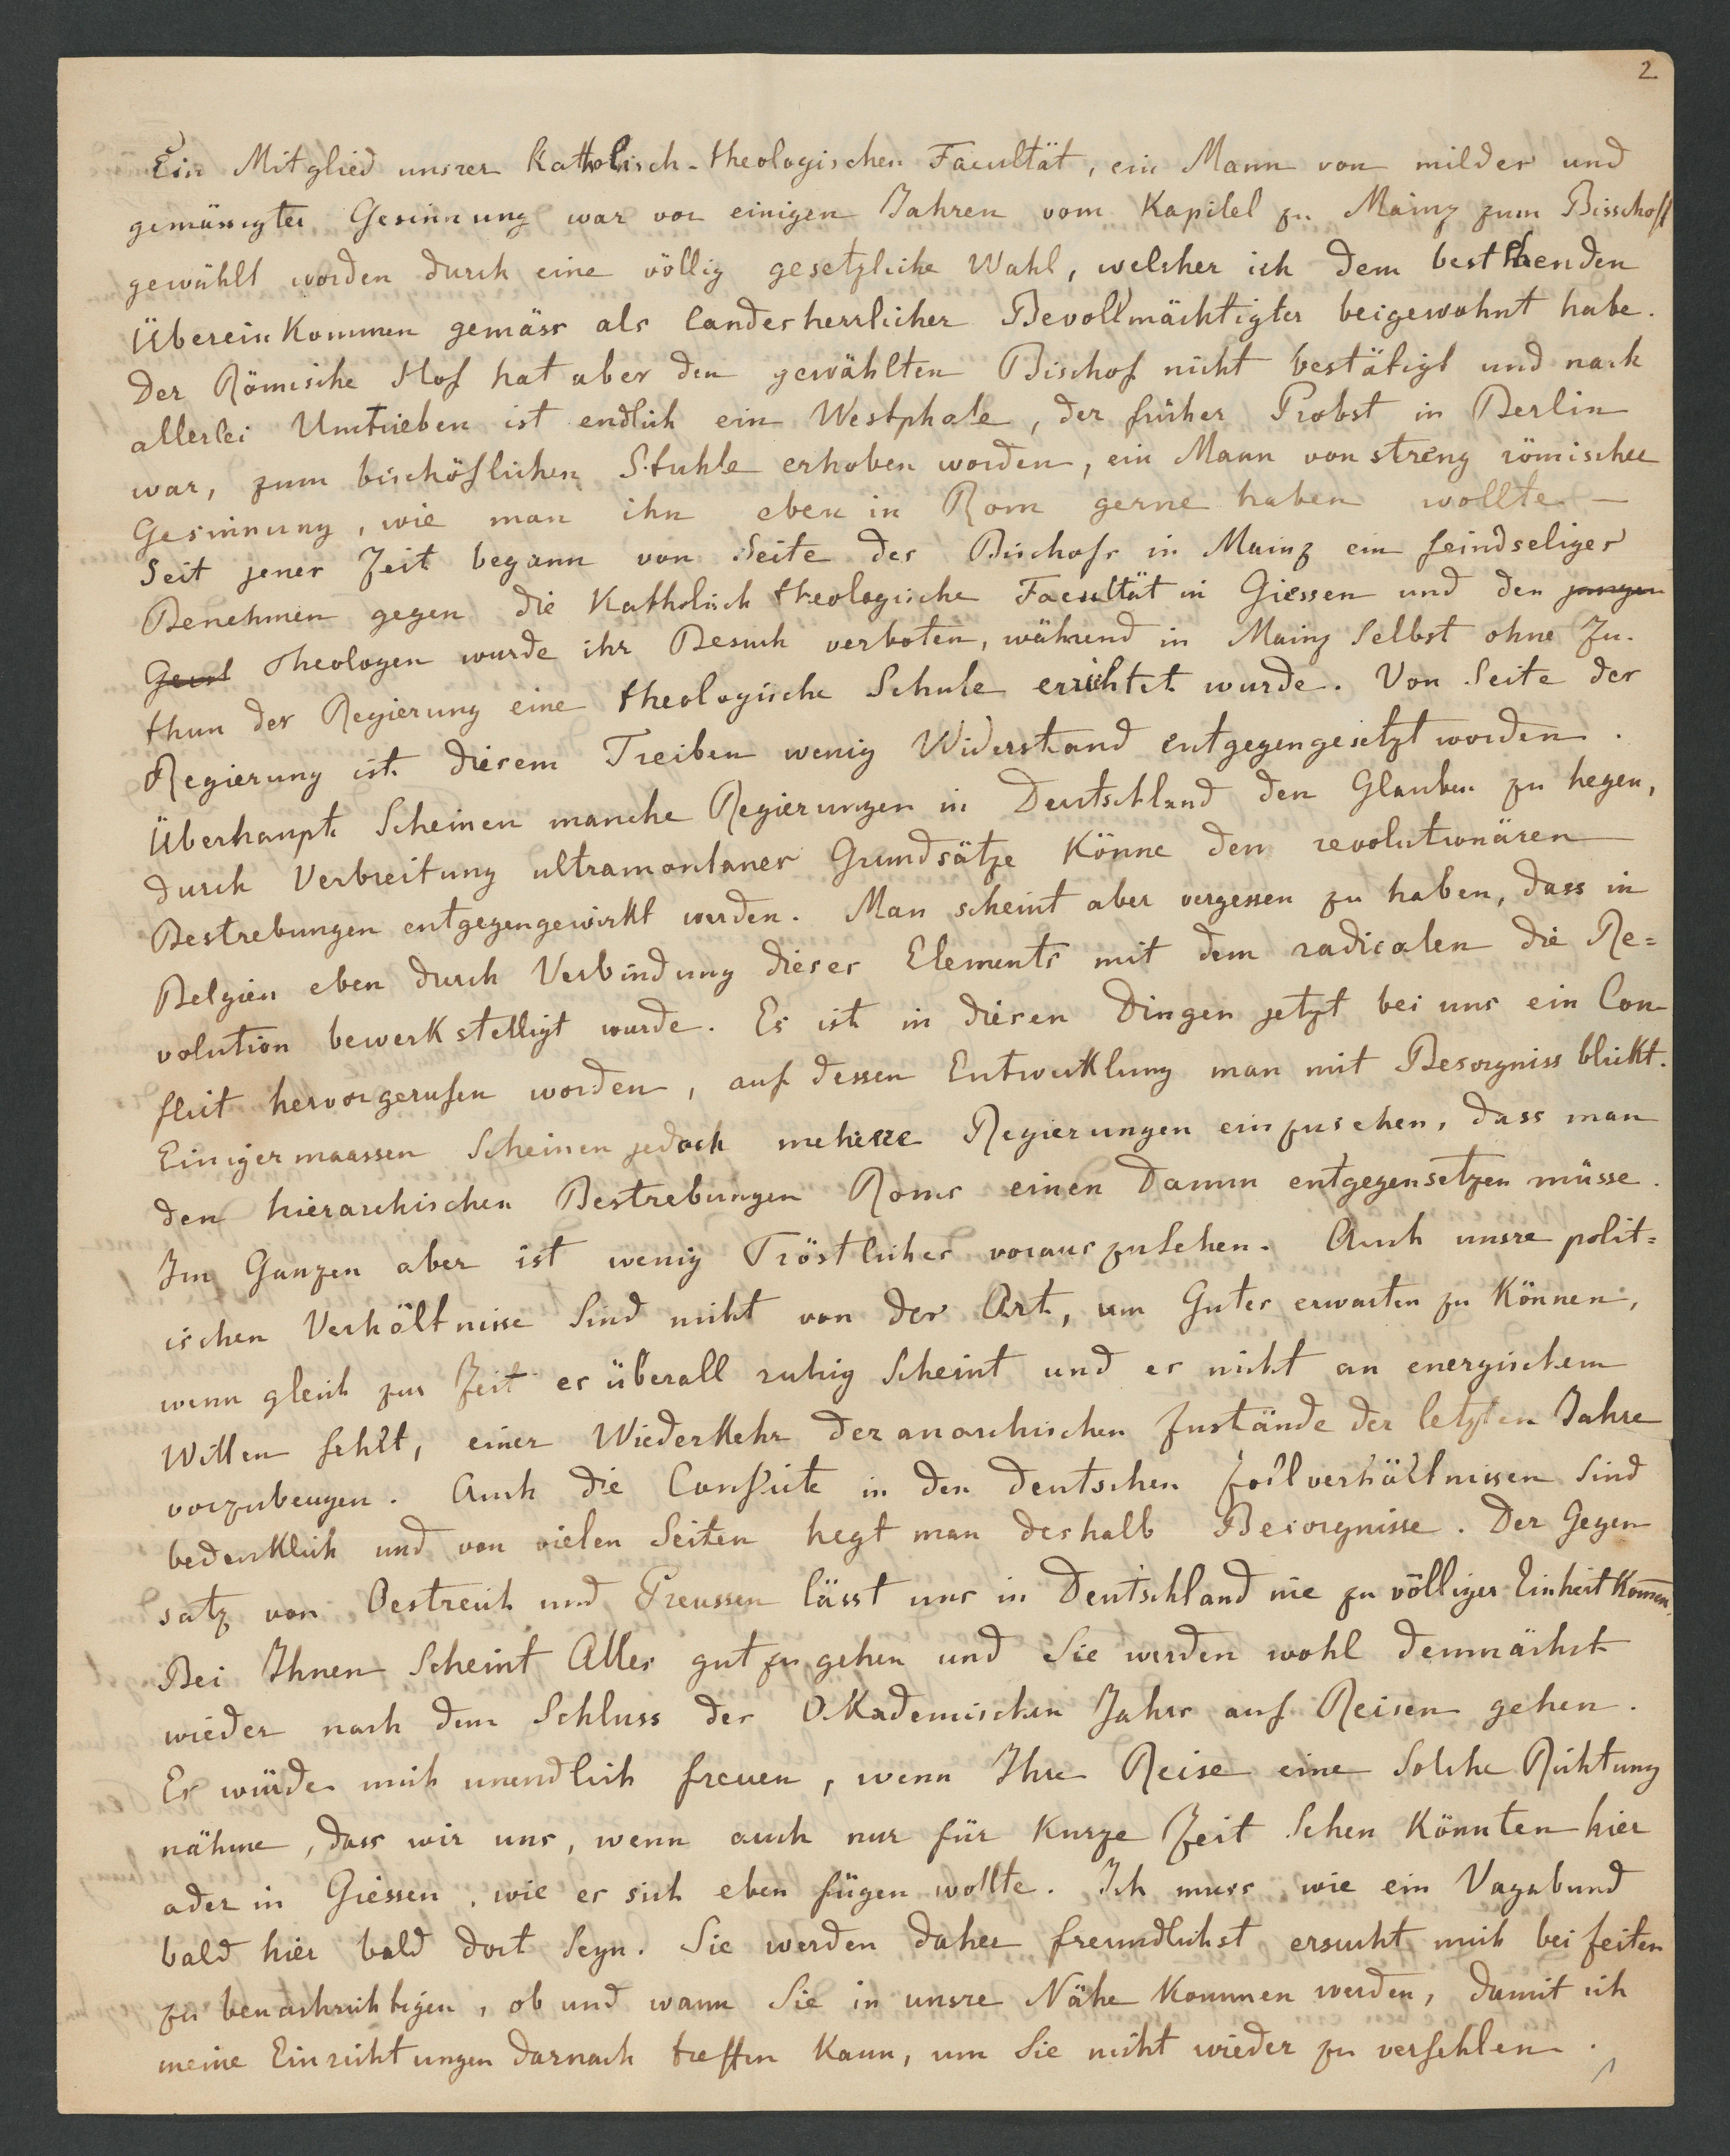 2
Ein Mitglied unsrer katholisch-theologischen Facultät, ein Mann von milder und
gemässigter Gesinnung war vor einigen Jahren vom Kapitel zu Mainz zum Bisschoff
gewählt worden durch eine völlig gesetzliche Wahl, welcher ich dem bestehenden
Übereinkommen gemäss als landesherrlicher Bevollmächtigter beigewohnt habe.
Der Römische Hof hat aber den gewählten Bischof nicht bestätigt und nach
allerlei Umtrieben ist endlich ein Westphale, der früher Probst in Berlin
war, zum bischöflichen Stuhle erhoben worden, ein Mann von streng römischer
Gesinnung, wie man ihn eben in Rom gerne haben wollte. —
Seit jener Zeit begann von Seite des Bischofs in Mainz ein feindseliges
Benehmen gegen die katholisch theologische Facultät in Giessen und den jungen
Geist Theologen wurde ihr Besuch verboten, während in Mainz selbst ohne Zu-
thun der Regierung eine theologische Schule errichtet wurde. Von Seite der
Regierung ist diesem Treiben wenig Widerstand entgegengesetzt worden.
Überhaupt scheinen manche Regierungen in Deutschland den Glauben zu hegen,
durch Verbreitung ultramontaner Grundsätze könne den revolutionären
Bestrebungen entgegengewirkt werden. Man scheint aber vergessen zu haben, dass in
Belgien eben durch Verbindung dieses Elements mit dem radicalen die Re=
volution bewerkstelligt wurde. Es ist in diesen Dingen jetzt bei uns ein Con-
flict hervorgerufen worden, auf dessen Entwicklung man mit Besorgniss blickt.
Einigermaassen scheinen jedoch mehrere Regierungen einzusehen, dass man
den hierarchischen Bestrebungen Roms einen Damm entgegensetzen müsse.
Im Ganzen aber ist wenig Tröstliches vorauszusehen. Auch unsre polit=
ischen Verhältnisse sind nicht von der Art, um Gutes erwarten zu können,
wenn gleich zur Zeit es überall ruhig scheint und es nicht an energischem
Willen fehlt, einer Wiederkehr der anarchischen Zustände der letzten Jahre
vorzubeugen. Auch die Conflicte in den deutschen Zollverhältnissen sind
bedenklich und von vielen Seiten hegt man deshalb Besorgnisse. Der Gegen
satz von Oestreich und Preussen lässt uns in Deutschland nie zu völliger Einheit kom̄en.
Bei Ihnen scheint Alles gut zu gehen und Sie werden wohl demnächst
wieder nach dem Schluss des Akademischen Jahrs auf Reisen gehen.
Es würde mich unendlich freuen, wenn Ihre Reise eine solche Richtung
nähme, dass wir uns, wenn auch nur für kurze Zeit sehen könnten hier
oder in Giessen, wie es sich eben fügen wollte. Ich muss wie ein Vagabund
bald hier bald dort seyn. Sie werden daher freundlichst ersucht mich bei Zeiten
zu benachrichtigen, ob und wann Sie in unsre Nähe kommen werden, damit ich
meine Einrichtungen darnach treffen kann, um Sie nicht wieder zu verfehlen.